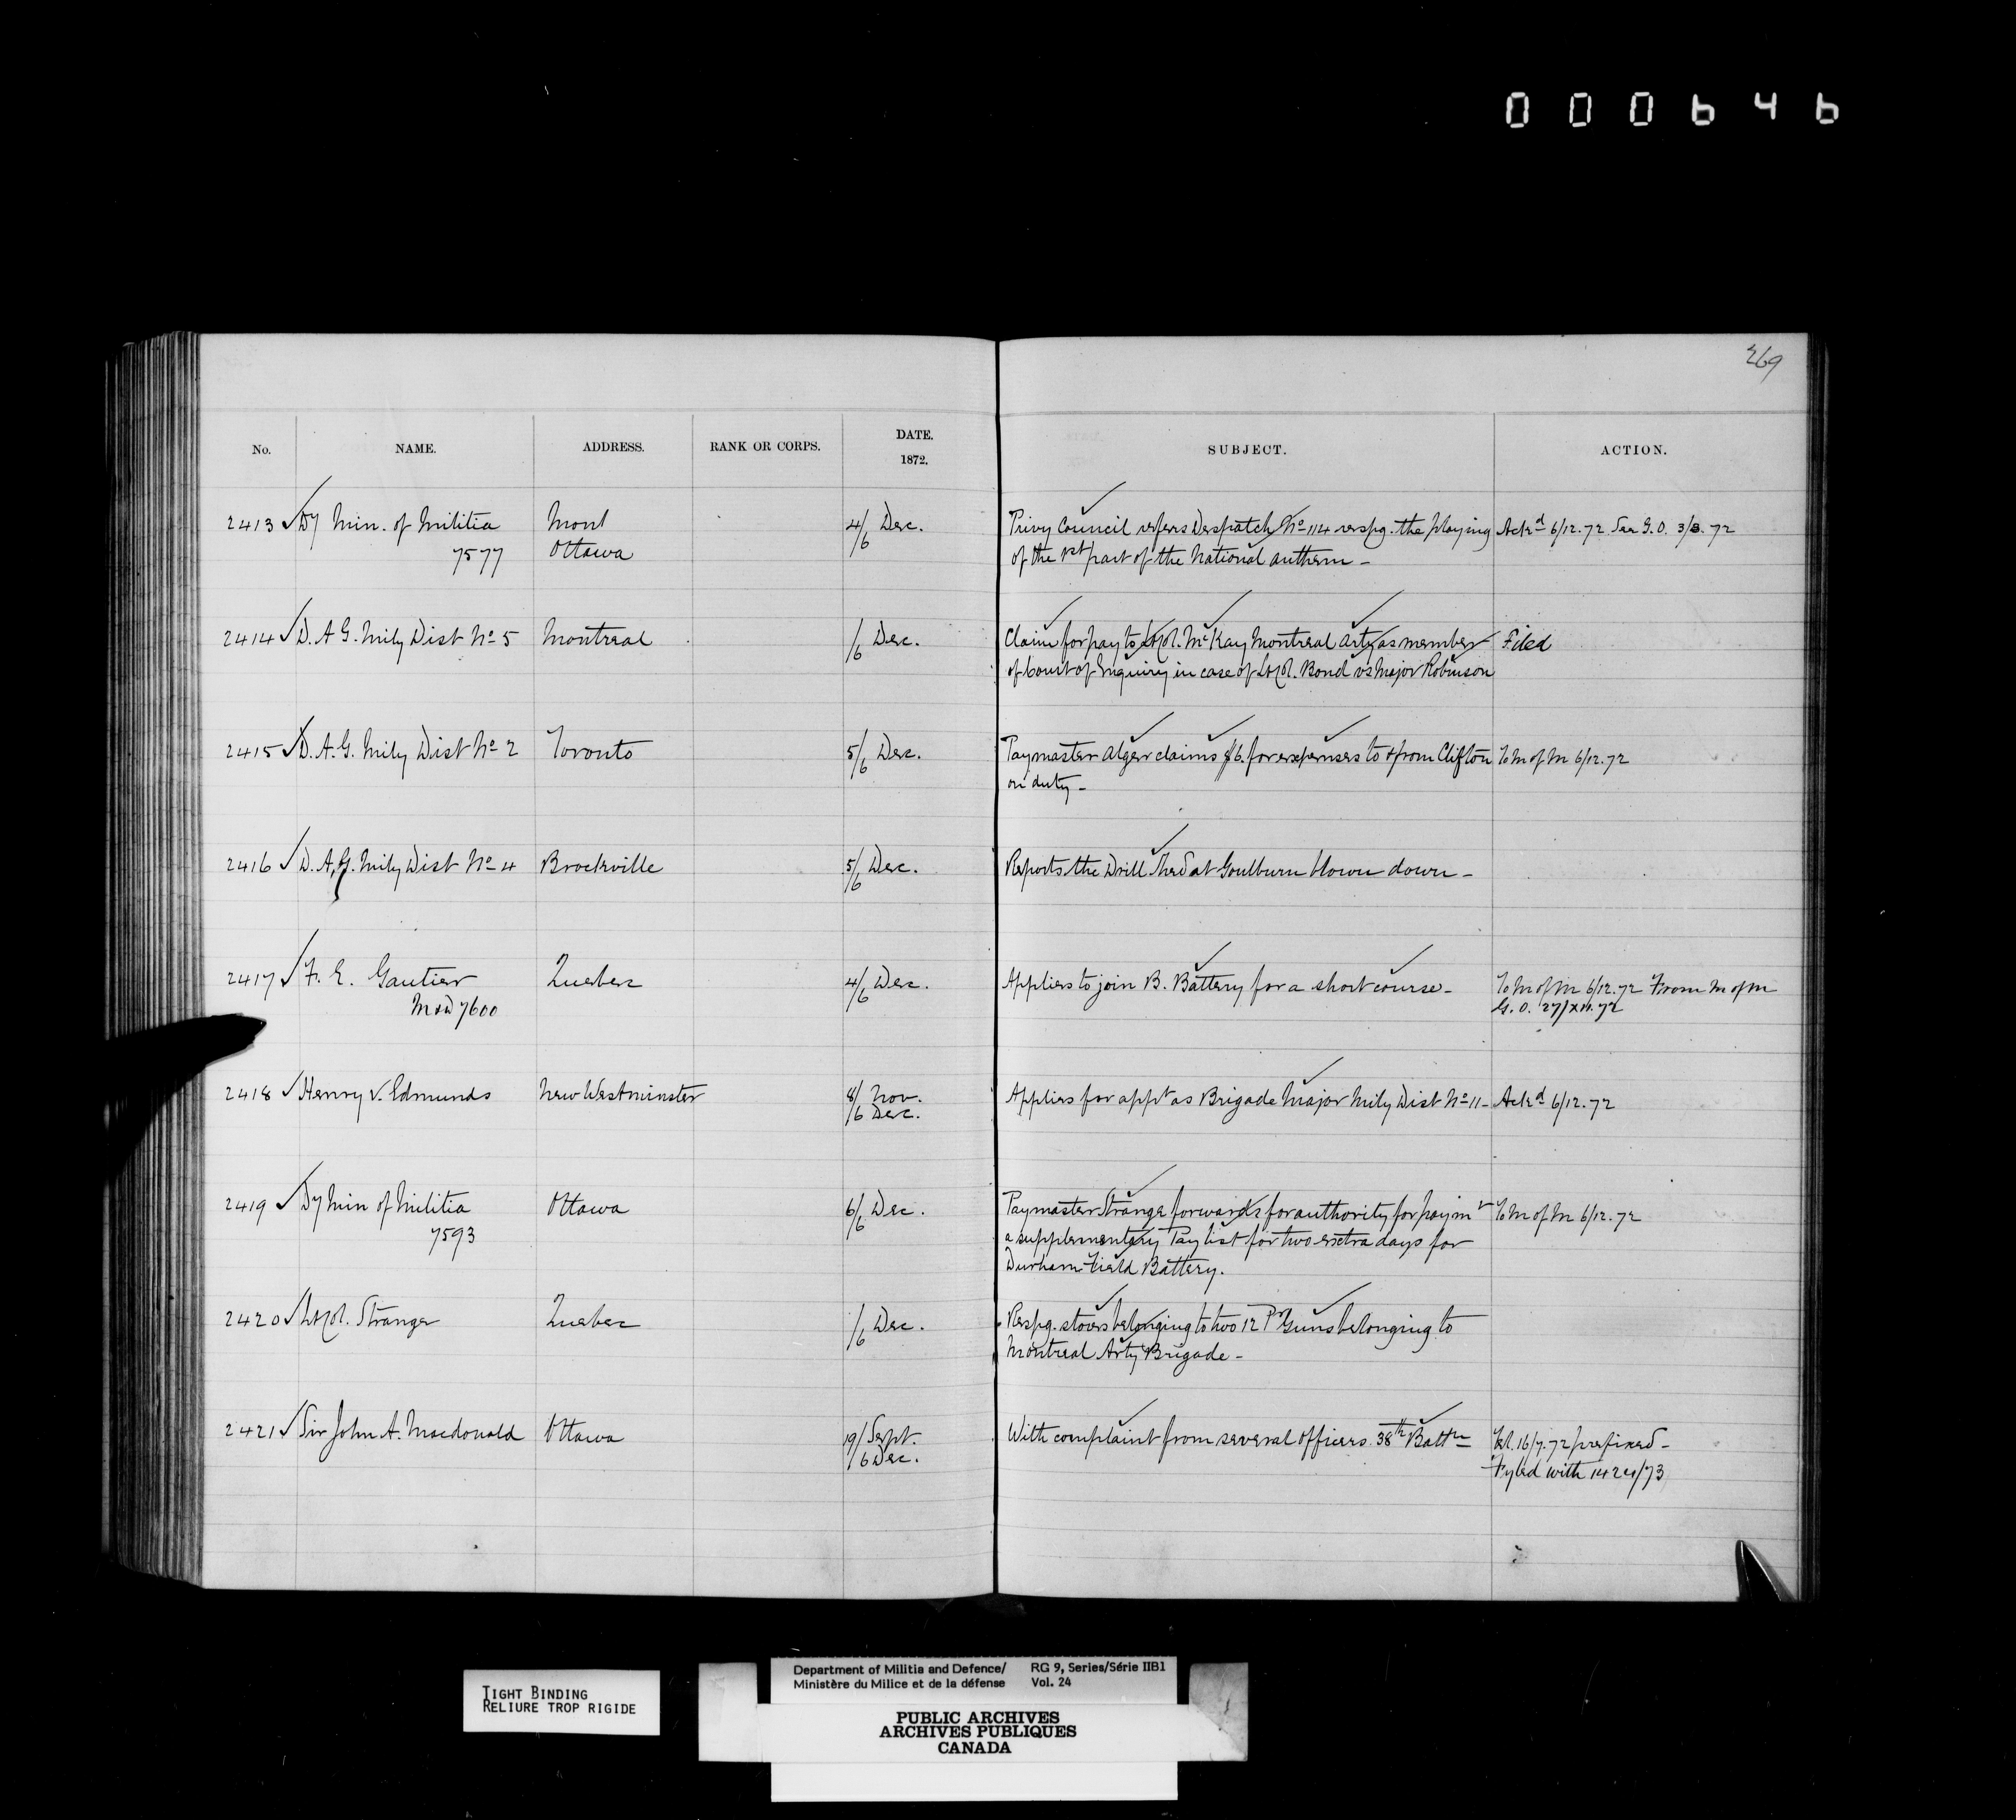 000646
269
No. NAME. ADDRESS. RANK OR CORPS. DATE. 1872. SUBJECT. ACTION.
2413 Dy Min. of Militia Mont 4/6 Dec. Privy Council refers Despatch No 114 respg. the playing Ackd 6/12.72 See G.O. 3/3.72
7577 Ottawa of the 1st part of the National anthem -
2414 D. A G. Mily Dist No 5 Montreal /6 Dec. Claim for pay to Lt Col. McKay Montreal Arty as member Filed
of Court of Inquiry in case of Lt Col. Bond vs Major Robinson
2415 D. A. G. Mily Dist No 2 Toronto 5/6 Dec. Paymaster Alger claims $6. for expenses to & from Clifton To M of M 6/12.72
on duty -
2416 D. A. G. Mily Dist No 4 Brockville 5/6 Dec. Reports the Drill Shed at Goulburn blown down -
2417 F. E. Gautier Quebec 4/6 Dec. Applies to join B. Battery for a short course - To M of M 6/12.72 From M of M
M & D 7600 G. O. 27/XII.72
2418 Henry V. Edmunds New Westminster 8/ Nov. Applies for appt as Brigade Major Mily Dist No 11 - Ackd 6/12.72
/6 Dec.
2419 Dy Min of Militia Ottawa 6/6 Dec. Paymaster Strange forwards for authority for paymt To M of M 6/12.72
7593 a supplementary Pay list for two extra days for
Durham Field Battery.
2420 Lt Col. Strange Quebec /6 Dec. Respg. stores belonging to two 12 Pr Guns belonging to
Montreal Arty Brigade -
2421 Sir John A. Macdonald Ottawa 19/ Sept. With complaint from several officers 38th Battn 16/7.72 prefixed -
/6 Dec. Fyled with 1424/73
TIGHT BINDING
RELIURE TROP RIGIDE
Department of Militia and Defence/ RG 9, Series/Série IIB1
Ministère du Milice et de la défense Vol. 24
PUBLIC ARCHIVES
ARCHIVES PUBLIQUES
CANADA